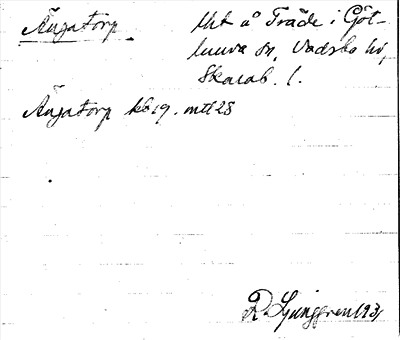 Ängatorp Uht å Träde i Göt-
lunda sn, Vadsbo hd,
Skarab. l.
Ängatorp kb 19. mtl 28
R Ljunggren 1931